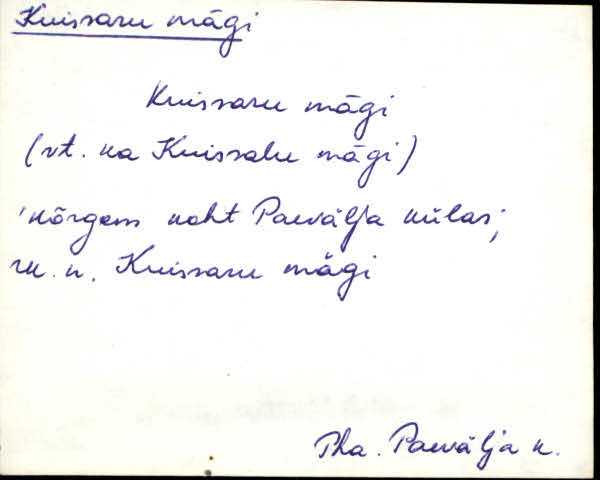 Kuissaru mägi
Kuissaru mägi
(vt. ka Kuissalu mägi)
'kõrgem koht Paevälja külas;
rk. n. Kuissaru mägi
Pha. Paevälja k.